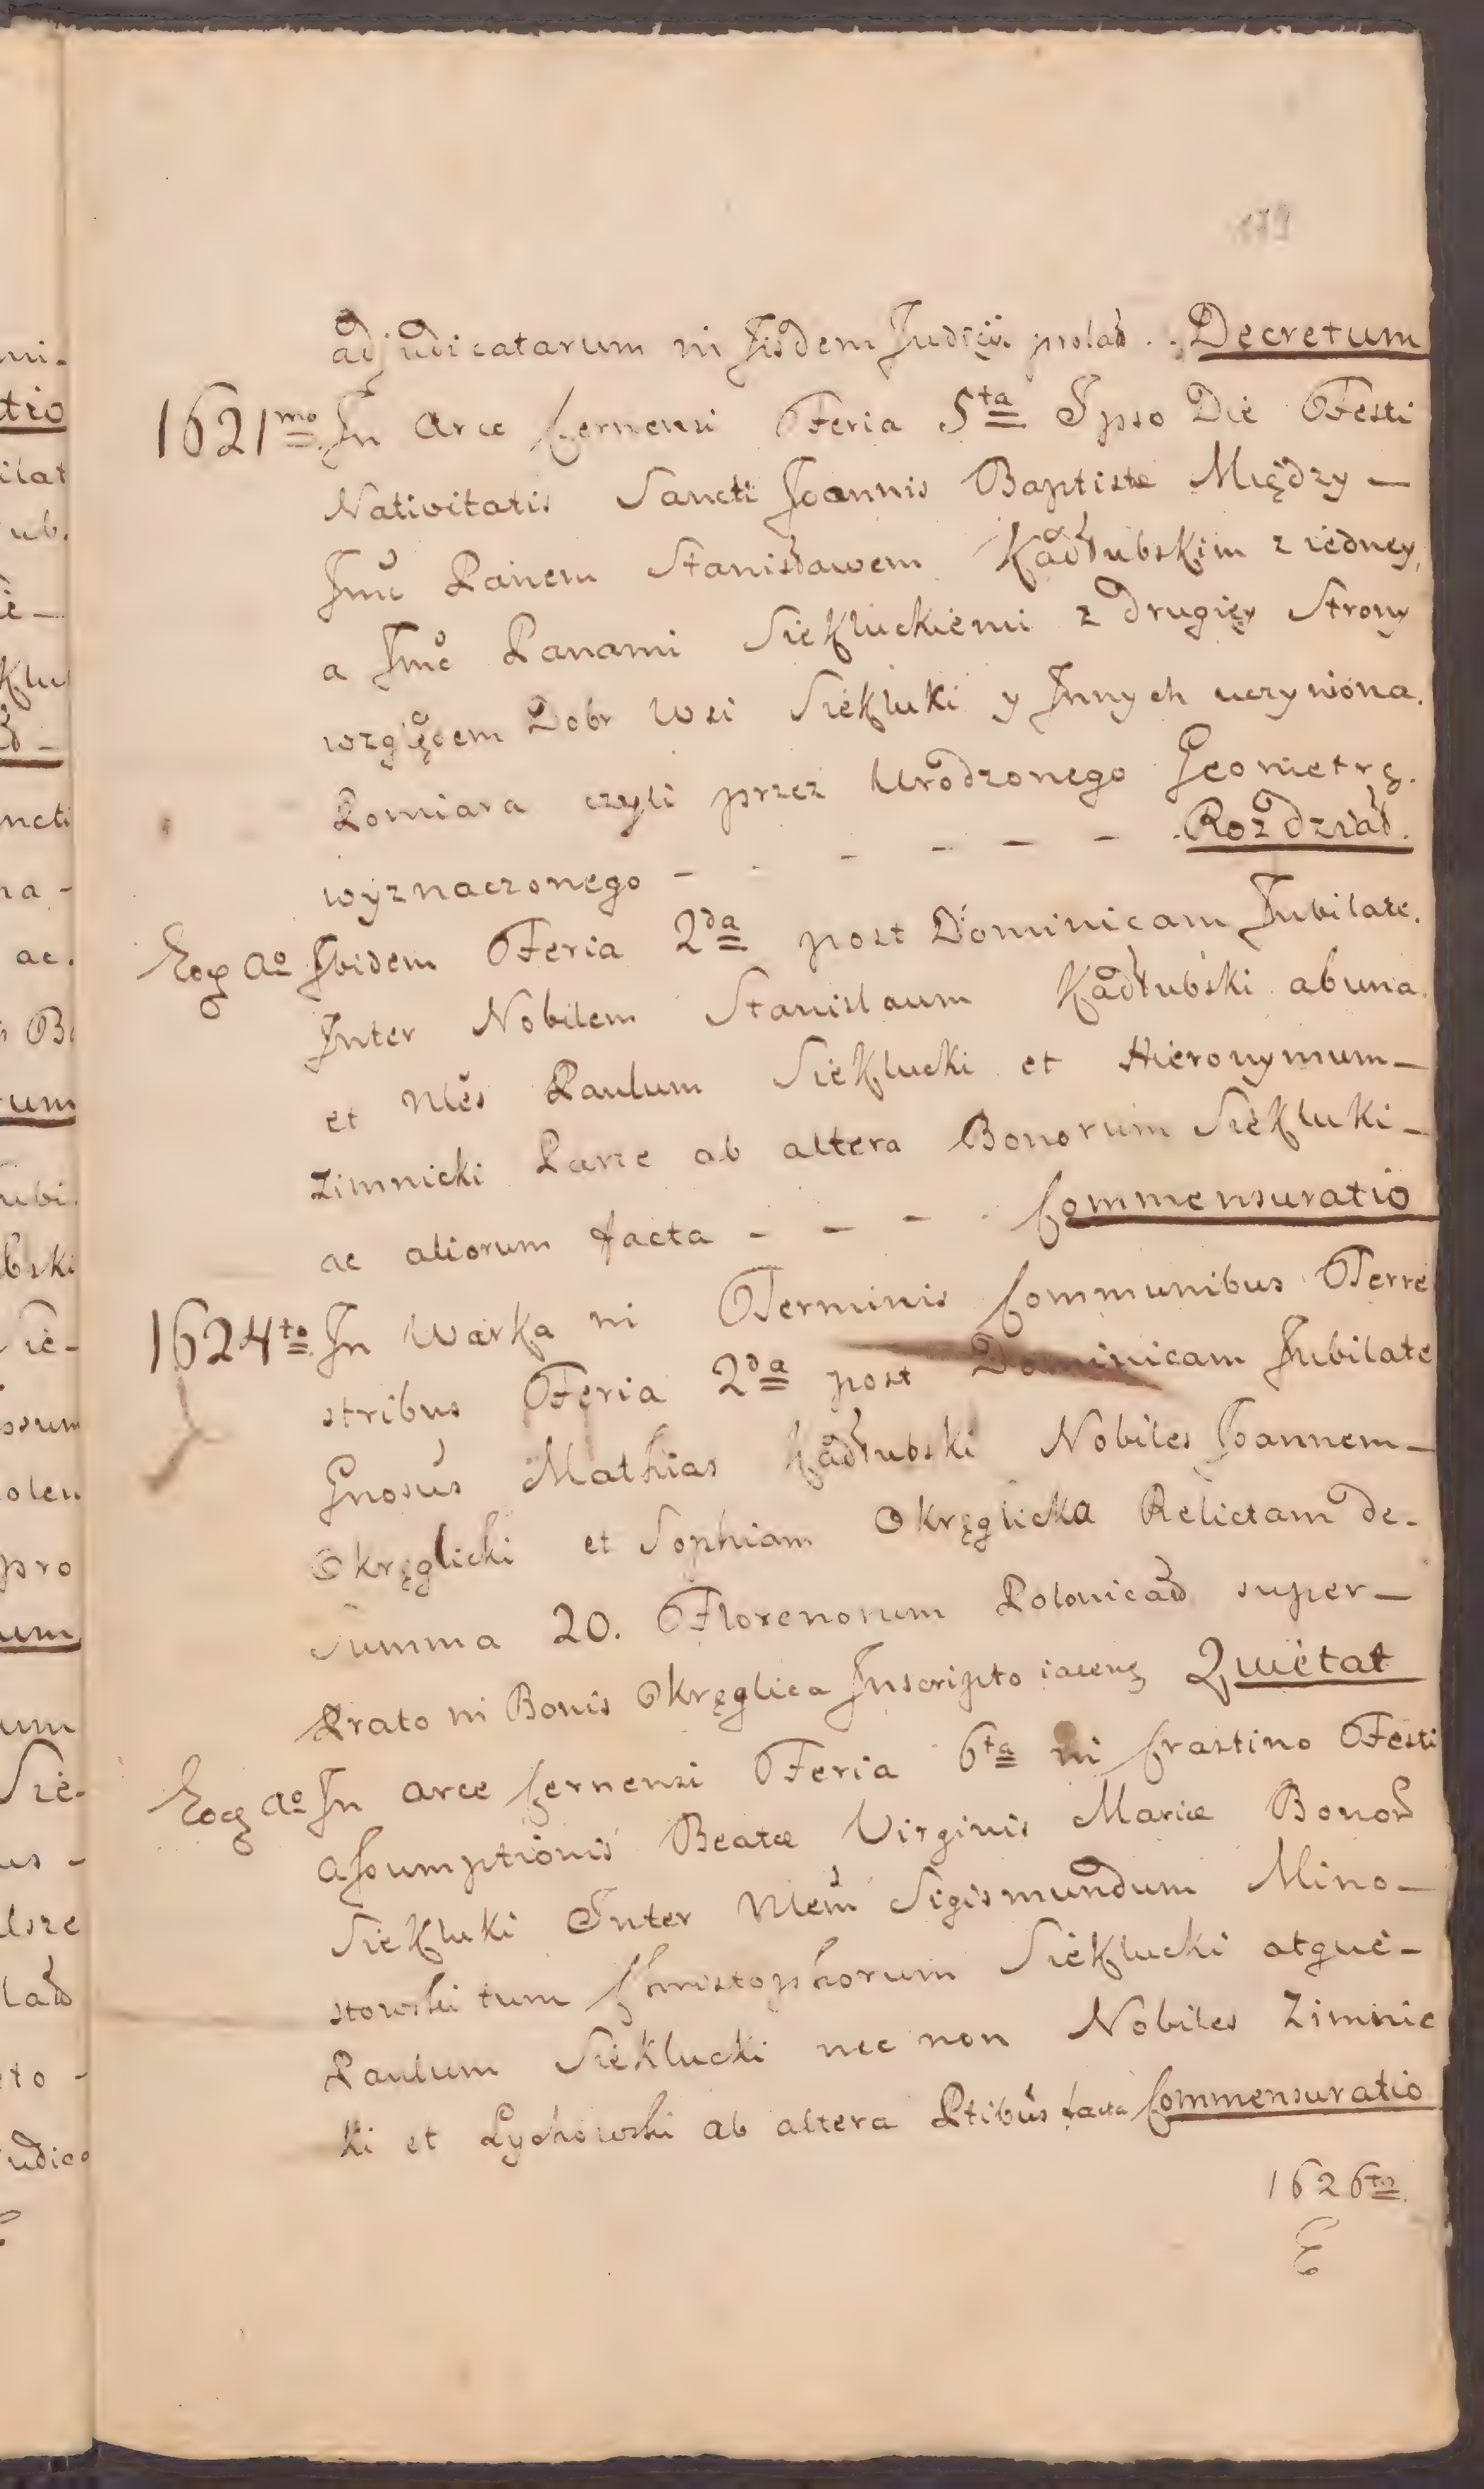 adjudicatarum in Iisdem Judicÿs prolat .. Decretum
1621mo In Arce Cernensi Feria 5ta Ipso Die Festi
Nativitatis Sancti Joannis Baptistæ Między —
Jmć Panem Stanisławem Kadłubskim z iedney,
a Jmć Panami Siekluckiemi z drugięy Strony
względem Dobr Wsi Siekluki y Innych uczyniona.
Pomiara czyli przez Urodzonego Geometrę.
wyznaczonego - - - - - - . Rozdział.
Eoq Ao Ibidem Feria 2da post Dominicam Jubilate.
Inter Nobilem Stanislaum Kadłubski abuna.
et Nles Paulum Sieklucki et Hieronymum —
Zimnicki Parte ab altera Bonorum Siekluki —
ac aliorum facta - - - . Commensuratio
1624to In Warka in Terminis Communibus Terre
stribus Feria 2da post Dominicam Jubilate
Gnosus Mathias Kadłubski Nobiles Joannem —
Okręglicki et Sophiam Okręglicka Relictam de.
Summa 20. Florenorum Polonical super —
Prato in Bonis Okręglica Inscripto iacenq Quietat
Eoq Ao In Arce Cernensi Feria 6ta in Crastino Festi
Assumptionis Beatæ Virginis Mariæ Bonor
Siekluki Inter Nlem Sigismundum Mino —
stowski tum Christophorum Sieklucki atque —
Paulum Sieklucki nec non Nobiles Zimnic
ki et Lychowski ab altera Ptibus facta Commensuratio
1626to